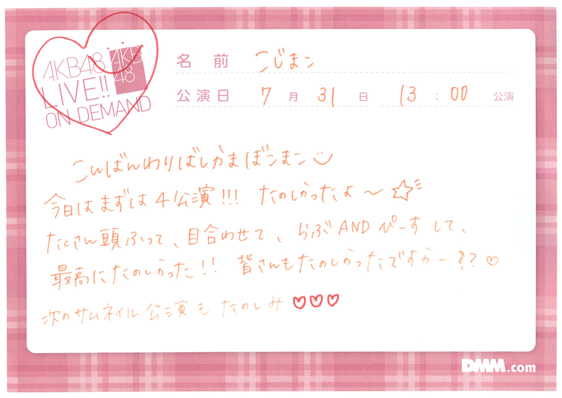 AKB48
LIVE!!
ON DEMAND
AKB
48
名 前 こじまこ
公演日 7 月 31 日 13 : 00 公演
こんばんわりばしかまぼこまこ
今日はまずは4公演!!! たのしかったよ〜☆
たくさん頭ふって、目合わせて、らぶANDぴーすして、
最高にたのしかった!! 皆さんもたのしかったですかー??♡
次のサムネイル公演も たのしみ♡♡♡
DMM.com